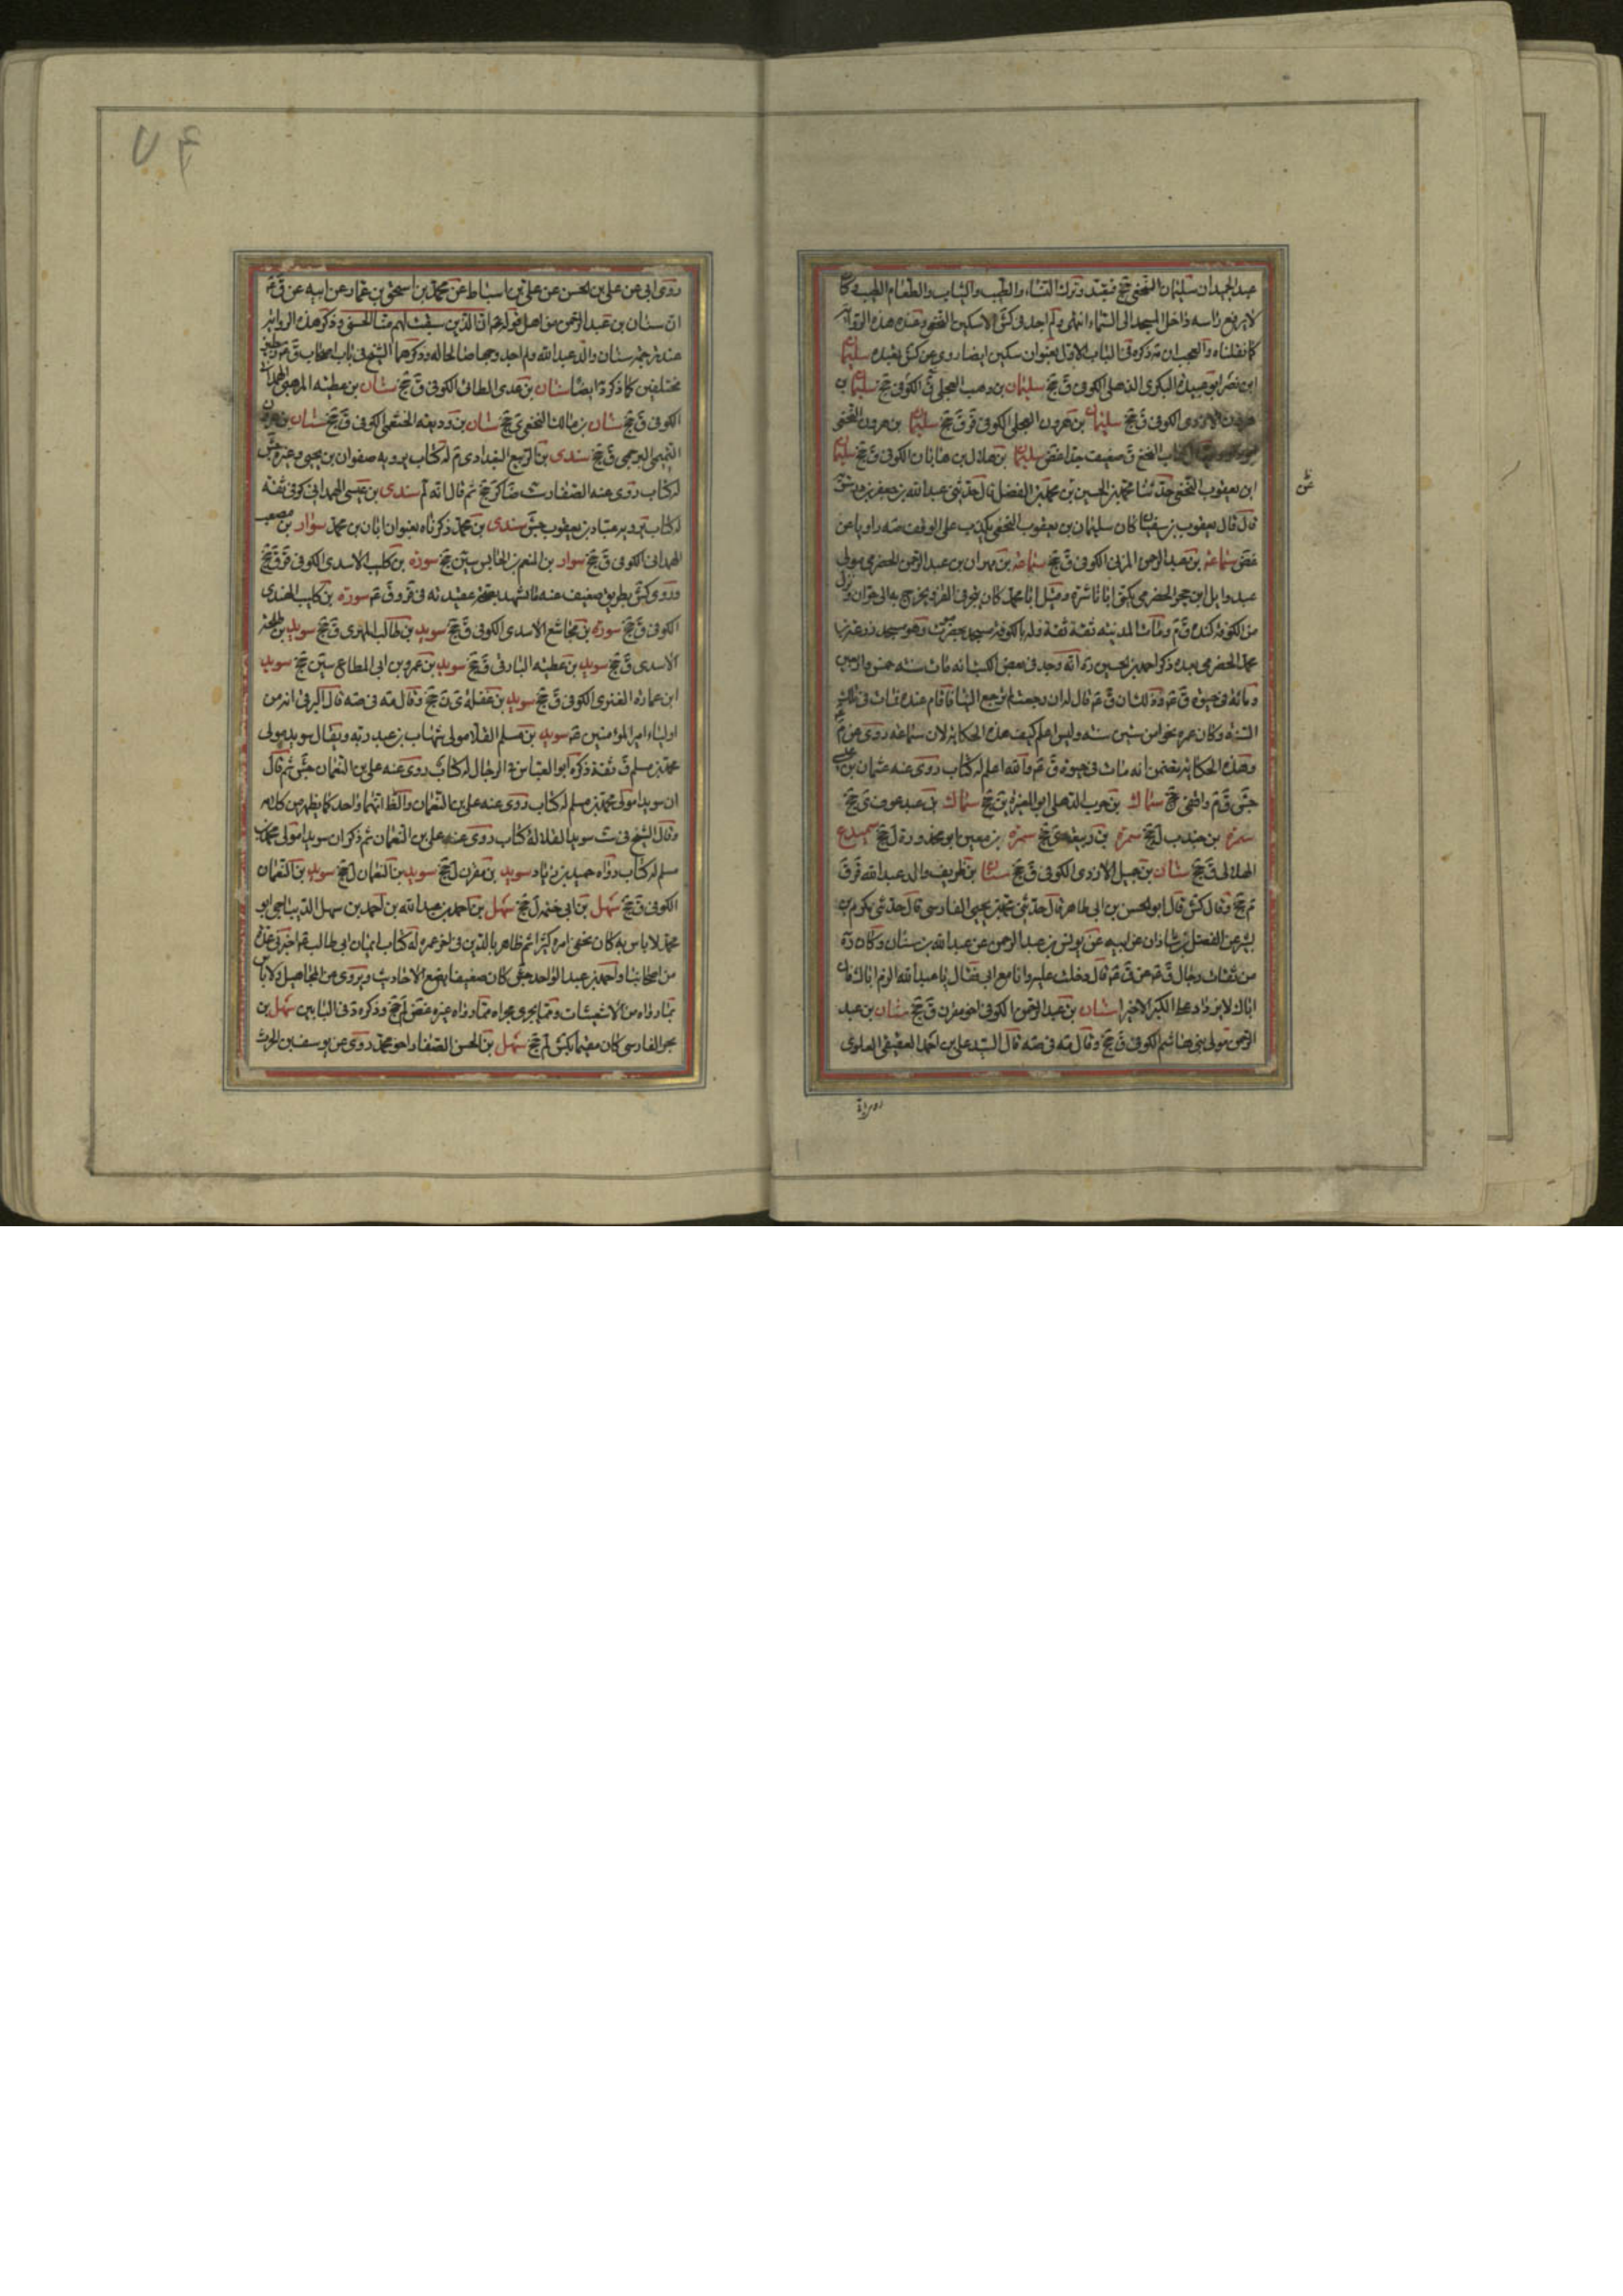 عبد الحميد ان سليمان النخعي جخ فتعبد وترك النساء والطيب والثياب والطعام الطيب وكان
لا يرفع راسه داخل المسجد الى السماء انتهى ولم اجد في كش الا سكين النخعي وعنده هذه الرواية
كما نقلناه والعجب ان مه ذكره في الباب الاول بعنوان سكين ايضا روى عن كش بعيده سليمان
ابن نصر ابو عبيدة البكرى الذهلي الكوفي ق جخ سليمان بن وهب العجلي الكوفي جخ سليمان بن
هرون الازدى الكوفي ق جخ سليمان بن هرون العجلي الكوفي قر ق جخ سليمان بن هرون النخعي
النخع ق ضعيف جدا غض سليمان بن هلال بن جابان الكوفي ق جخ سليمان
ابن يعقوب النخعي حدثنا محمد بن الحسين بن محمد بن الفضل قال حدثني عبد الله بن جعفر بن درستويه
قال قال يعقوب بن سفيان كان سليمان بن يعقوب النخعي يكذب على الوقف صه راويا عن
غض سماعة بن عبد الرحمن المزني الكوفي ق جخ سماعة بن مهران بن عبد الرحمن الحضرمي مولى
عبد وايل ابن حجر الحضرمي يكنى ابا ناشرة وقيل ابا محمد كان يتجر في القز ويخرج به الى حران ونزل
من الكوفة كندة ق م ومات بالمدينة ثقة ثقة وله بالكوفة مسجد بحضرموت وهو مسجد زرعة بن
محمد الحضرمي بعده ذكر احمد بن الحسين ره انه وجد في بعض الكتب انه مات سنة خمس واربعين
ومائة في حيوة ق ع وذلك ان ق ع قال له ان رجعت لم ترجع الينا فاقام عنده فمات في تلك
السنة وكان عمره نحوا من ستين سنة وليس اعلم كيف هذه الحكاية لان سماعة روى عن م
وهذه الحكاية تتضمن انه مات في حيوة ق ع والله اعلم له كتاب روى عنه عثمان بن عيسى
جش ق م واقفي جخ سماك بن حرب الذهلي ابو المغيرة ين جخ سماك بن عبد عوف ى جخ
سمرة بن جندب ل جخ سمرة بن ربيعة ى جخ سمرة بن معين ابو محذورة ل جخ سميدع
الهلالي ق جخ سنان بن جميل الازدى الكوفي ق جخ سنان بن طريف والد عبد الله قر ق
م جخ وقال كش قال ابو الحسن بن ابي طاهر قال حدثني محمد بن يحيى الفارسي قال حدثني مكرم بن
بشر عن الفضل بن شاذان عن ابيه عن يونس بن عبد الرحمن عن عبد الله بن سنان وكان ره
من ثقات رجال ق ع عن ق ع قال دخلت عليه وانا مع ابي فقال يا عبد الله الزم اباك فان
اباك لا يزداد على الكبر الا خيرا سنان بن عبد الرحمن الكوفي اخو مقرن ق جخ سنان بن عبد
الرحمن مولى بني هاشم الكوفي ق جخ وقال مه في صه قال السيد علي بن احمد العقيقي العلوى
روى ابي عن علي بن الحسن عن علي بن اسباط عن محمد بن اسحق بن عمار عن ابيه عن ق ع
ان سنان بن عبد الرحمن من اهل قوله ان الذين سبقت لهم منا الحسنى وذكر هذه الرواية
عند ترجمة سنان والد عبد الله ولم اجد وجها صالحا له وذكرهما الشيخ في باب اصحاب ق ع رجلين
مختلفين كما ذكره ايضا سنان بن عدى الطائي الكوفي ق جخ سنان بن عطية المرهبي الهمداني
الكوفي ق جخ سنان بن مالك النخعي ى جخ سنان بن وديعة الخثعمي الكوفي ق جخ سنان بن هرون
التميمي البرجمي ق جخ سندى بن الربيع البغدادى م له كتاب يرويه صفوان بن يحيى وغيره جش
له كتاب روى عنه الصفار ست ضا كر جخ ثم قال انه لم سندى بن عيسى الهمداني كوفي ثقة
له كتاب يرويه عباد بن يعقوب جش سندى بن محمد ذكرناه بعنوان ابان بن محمد سوار بن مصعب
الهمداني الكوفي ق جخ سوار بن المنعم بن الحابس سين جخ سورة بن كليب الاسدى الكوفي قر ق جخ
وروى كش بطريق ضعيف عنه ما يشهد بصحة عقيدته في قر وق ع سورة بن كليب الهندى
الكوفي ق جخ سورة بن مجاشع الاسدى الكوفي ق جخ سويد بن طالب المهرى ق جخ سويد بن
الاسدى ق جخ سويد بن عطية البارقي ق جخ سويد بن عمرو بن ابي المطاع سين جخ سويد
ابن عمارة الغنوى الكوفي ق جخ سويد بن غفلة ى ن جخ وقال مه في صه قال البرقي انه من
اولياء امير المؤمنين ع سويد بن مسلم القلا مولى شهاب بن عبد ربه ويقال سويد مولى
محمد بن مسلم ق ثقة ذكره ابو العباس في الرجال له كتاب روى عنه علي بن النعمان جش ثم قال
ان سويد مولى محمد بن مسلم له كتاب روى عنه علي بن النعمان والظ انهما واحد كما يظهر من كلامه
وقال الشيخ في ست سويد القلا له كتاب روى عنه علي بن النعمان ثم ذكر ان سويد مولى محمد بن
مسلم له كتاب رواه حميد بن زياد سويد بن مقرن ل جخ سويد بن النعمان ل جخ سويد بن النعمان
الكوفي ق جخ سهل بن ابي حثمة ل جخ سهل بن احمد بن عبد الله بن احمد بن سهل الديباجي ابو
محمد لا باس به كان يخفي امره كثيرا ثم ظاهر بالدين في اخر عمره له كتاب ايمان ابي طالب ع اخبرني عدة
من اصحابنا واحمد بن عبد الواحد جش كان ضعيفا يضع الاحاديث ويروى عن المجاهيل ولا باس
بما رواه من الاشعثيات وبما يجرى مجراه مما رواه غيره غض لم جخ وذكره د في البابين سهل بن
بحر الفارسي كان مقيما بكش لم جخ سهل بن الحسن الصفار اخو محمد روى عن يوسف بن الحرث